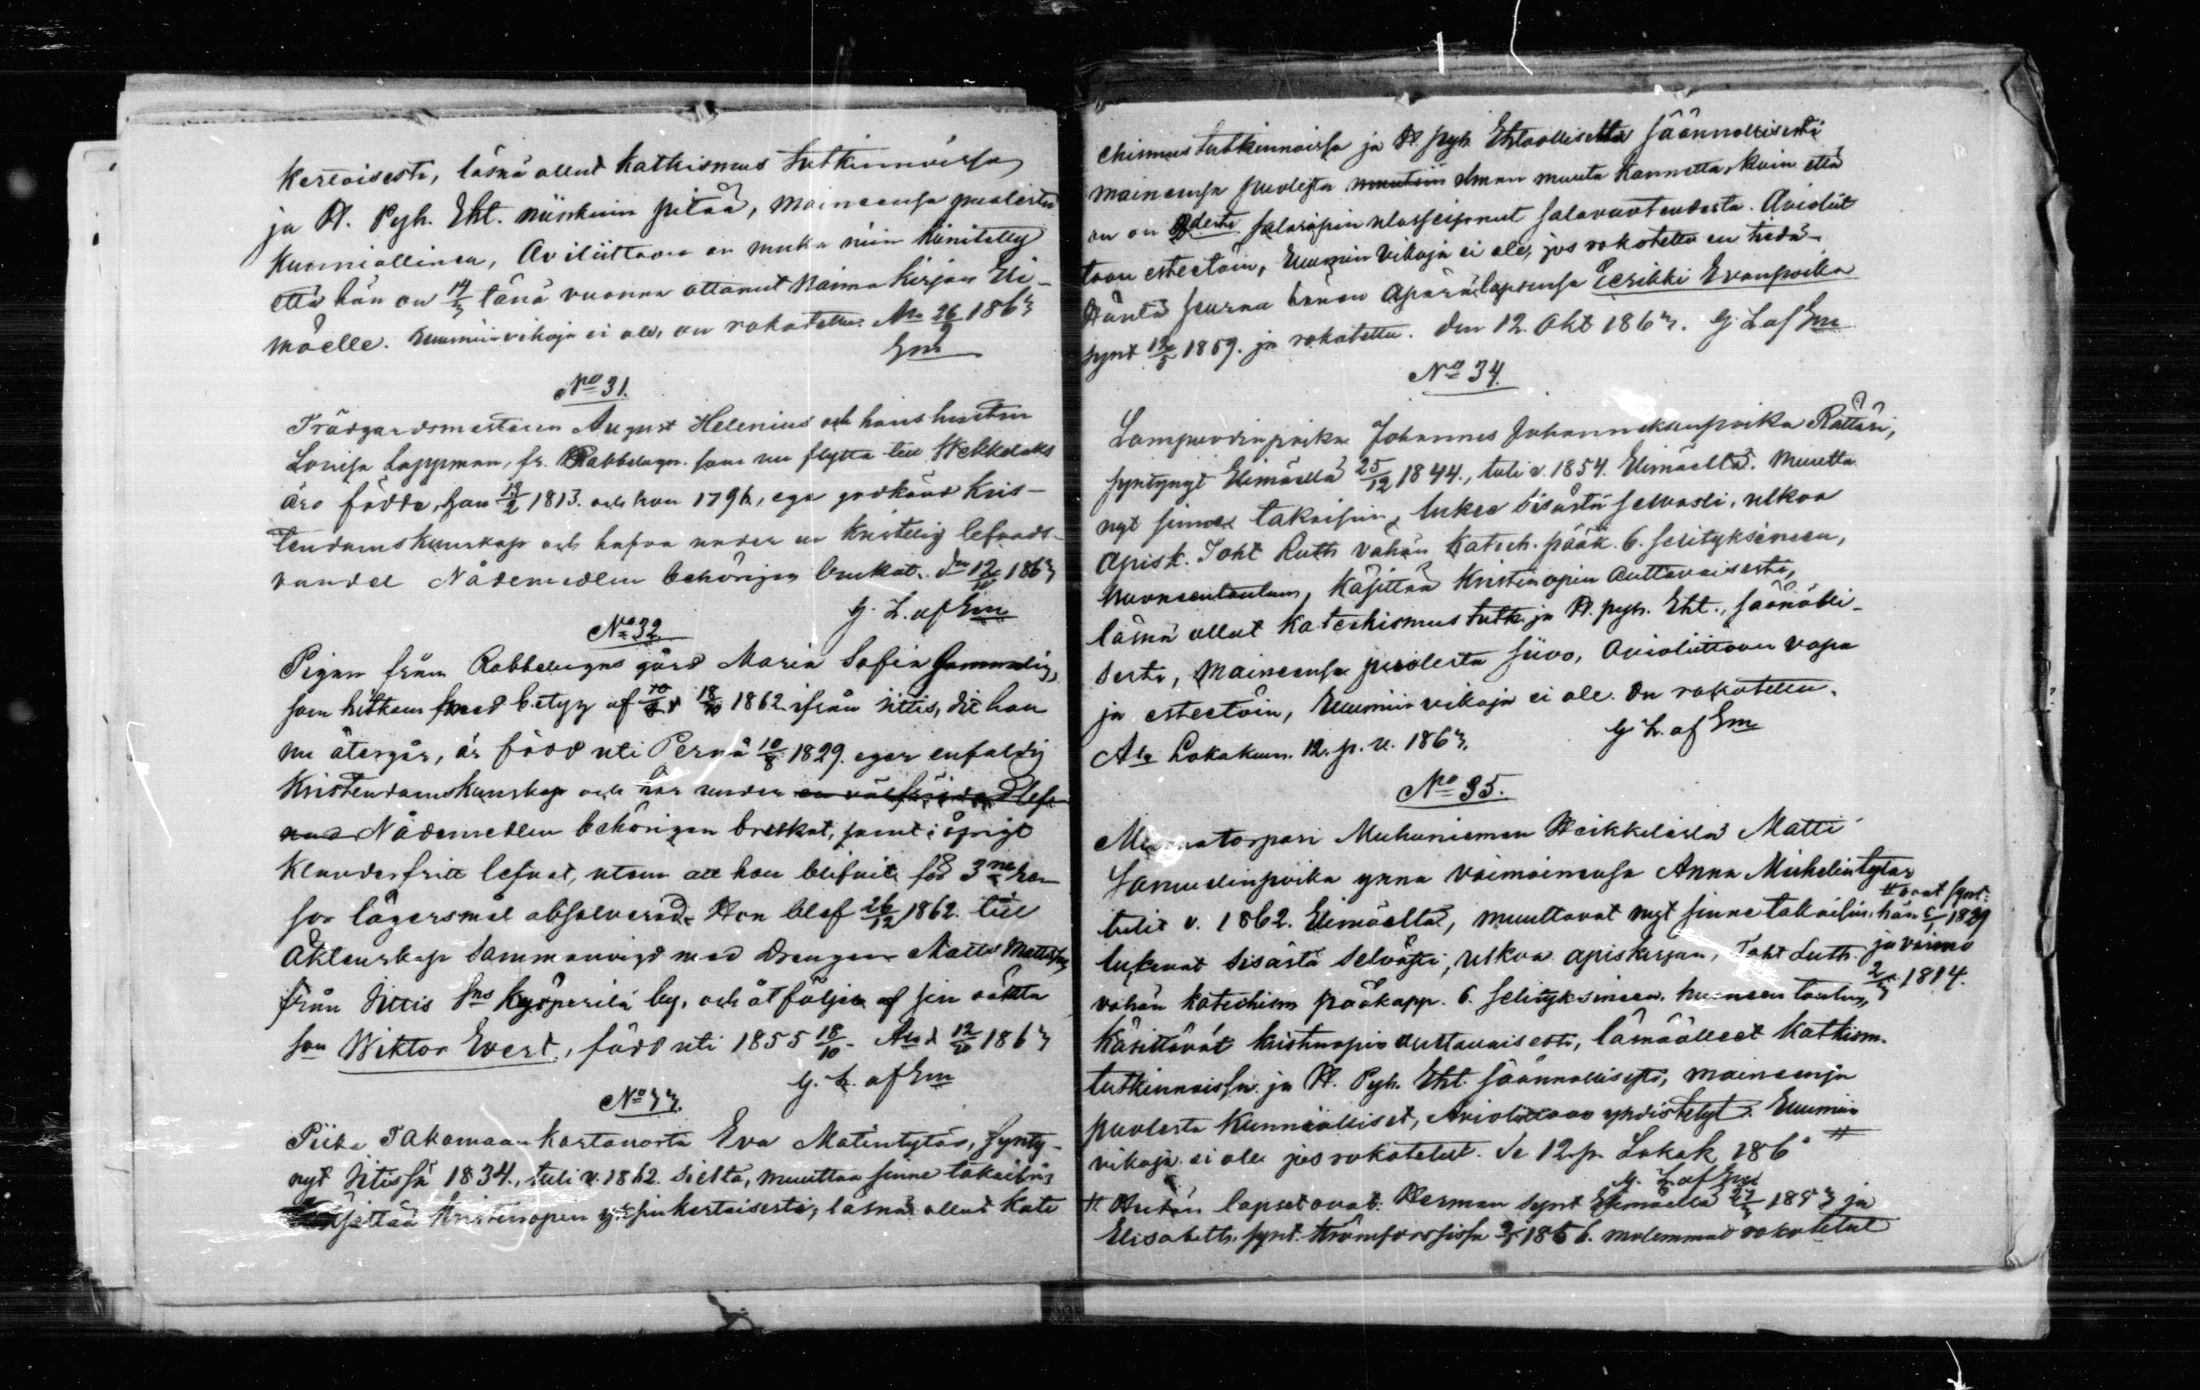 kertoisesti, läsnä ollut kathismus tutkinnoissa
ja H. Pyh. Eht. niinkuin pitää, maineensa puolesta
kunniallinen, Avioliittoon on muka niin kiinitetty
että hän on tänä vuonna ottanut Naima kirjan Eli-
mäelle. Ruumiin vikoja ei ole, on rokotettu. 26 186
Em
No 31.
Trädgardsmestaren August Helenius och hans hustru
Lovisa Lappman, fr. Rabbelugn. som nu flytta till Wekkelaks
äro födda, han 1813. och hon 1796, ega godkänd Kris-
tendomskunskap och hafva under en kristelig lefnads-
vandel Nådemedlen behörigen brukat. dn 12/10 186
G. L. af Em
No 32.
Pigan från Rabbelugns gård Maria Sofia
som hitkom med betyg af 18/10 1862 ifrån Iittis, dit hon
nu återgår, är född uti Pernå 10/8 1829. eger enfaldig
Kristendomskunskap och har under en
Nådemedlen behörigen brukat, samt i öfrigt
klanderfritt lefvat, utom att hon blifvit för 3ne
for lägersmål absolverad. Hon blef 26/12 1862. till
Äktenskap sammanvigd med drengen Matts Mattsson
från Iittis Sns Kyöperilä by, och åtföljes af sin oäkta
son Wiktor Evert, född uti 1855 18/10 - 12/10 186
G. L. af Em
No 33.
Piika Takamaan kartanosta Eva Matintytär, synty-
nyt Iitissä 1834., tuli v. 1862. sieltä, muuttaa sinne takaisin
käsittää kristinopin yksinkertaisesti, läsnä ollut kate
chismus tutkinnoissa ja H. pyh. Ehtoollisella säännollisesti
maineensa puolesta ilman muuta kannetta, kuin että
on on salavuoteudesta. Aviolit
toon esteetöin, Ruumiin vikoja ei ole, jos rokotettu en tiedä-
Häntä seuraa hänen äpärälapsensa Eerikki Evanpoika
synt 12/5 1859. ja rokotettu. den 12. Okt 186. G. L af Em
No 34.
Lampuodinpoika Johannes Johanneksenpoika Rättäri,
syntynyt Elimäellä 25/12 1844., tuli v. 1854. Elimäeltä. Muutta
nyt sinne takaisin, lukee sisästä selvästi, ulkoa
apisk. Toht Luth vähän Katech. pääk. 6. selityksineen,
huoneentaulun, käsittää kristinopin auttavaisesti,
läsnä ollut katechismus tutk. ja H. pyh. Eht., säänölli-
sesti, maineensa puolesta siivo, Avioliittoon vapa
ja esteetöin, Ruumiin vikoja ei ole. On rokotettu.
Lokakuun. 12. p. v. 186
G. L. af Em
No 35.
Muhuniemen Heikkilästä Matti
Samuelinpoika ynna vaimoinensa Anna Mickelintytär
tulit v. 1862. Elimäeltä, muuttavat nyt sinne takaisin,
# ovat synt. hän 1829
lukevat sisästä selvästi, ulkoa apiskirjan, Toht Luth.
ja vaimo 1814.
vähän katechism pääkapp. 6. selityksineen, huoneen taulun,
käsittävät kristinopin auttavaisesti, läsnäolleet kathism.
tutkinnoissa ja H. Pyh. Eht. säännollisesti, maineensa
puolesta kunnialliset, Avioliittoon yhdistetyt. Ruumiin
vikoja ei ole jos rokotetut. Se 12 p. Lokak 186
G. L. af Em
# Heidän lapset ovat: Herman synt Elimäellä 185 ja
Elisabeth, synt. Strömforssissa 1856. molemmat rokotetut